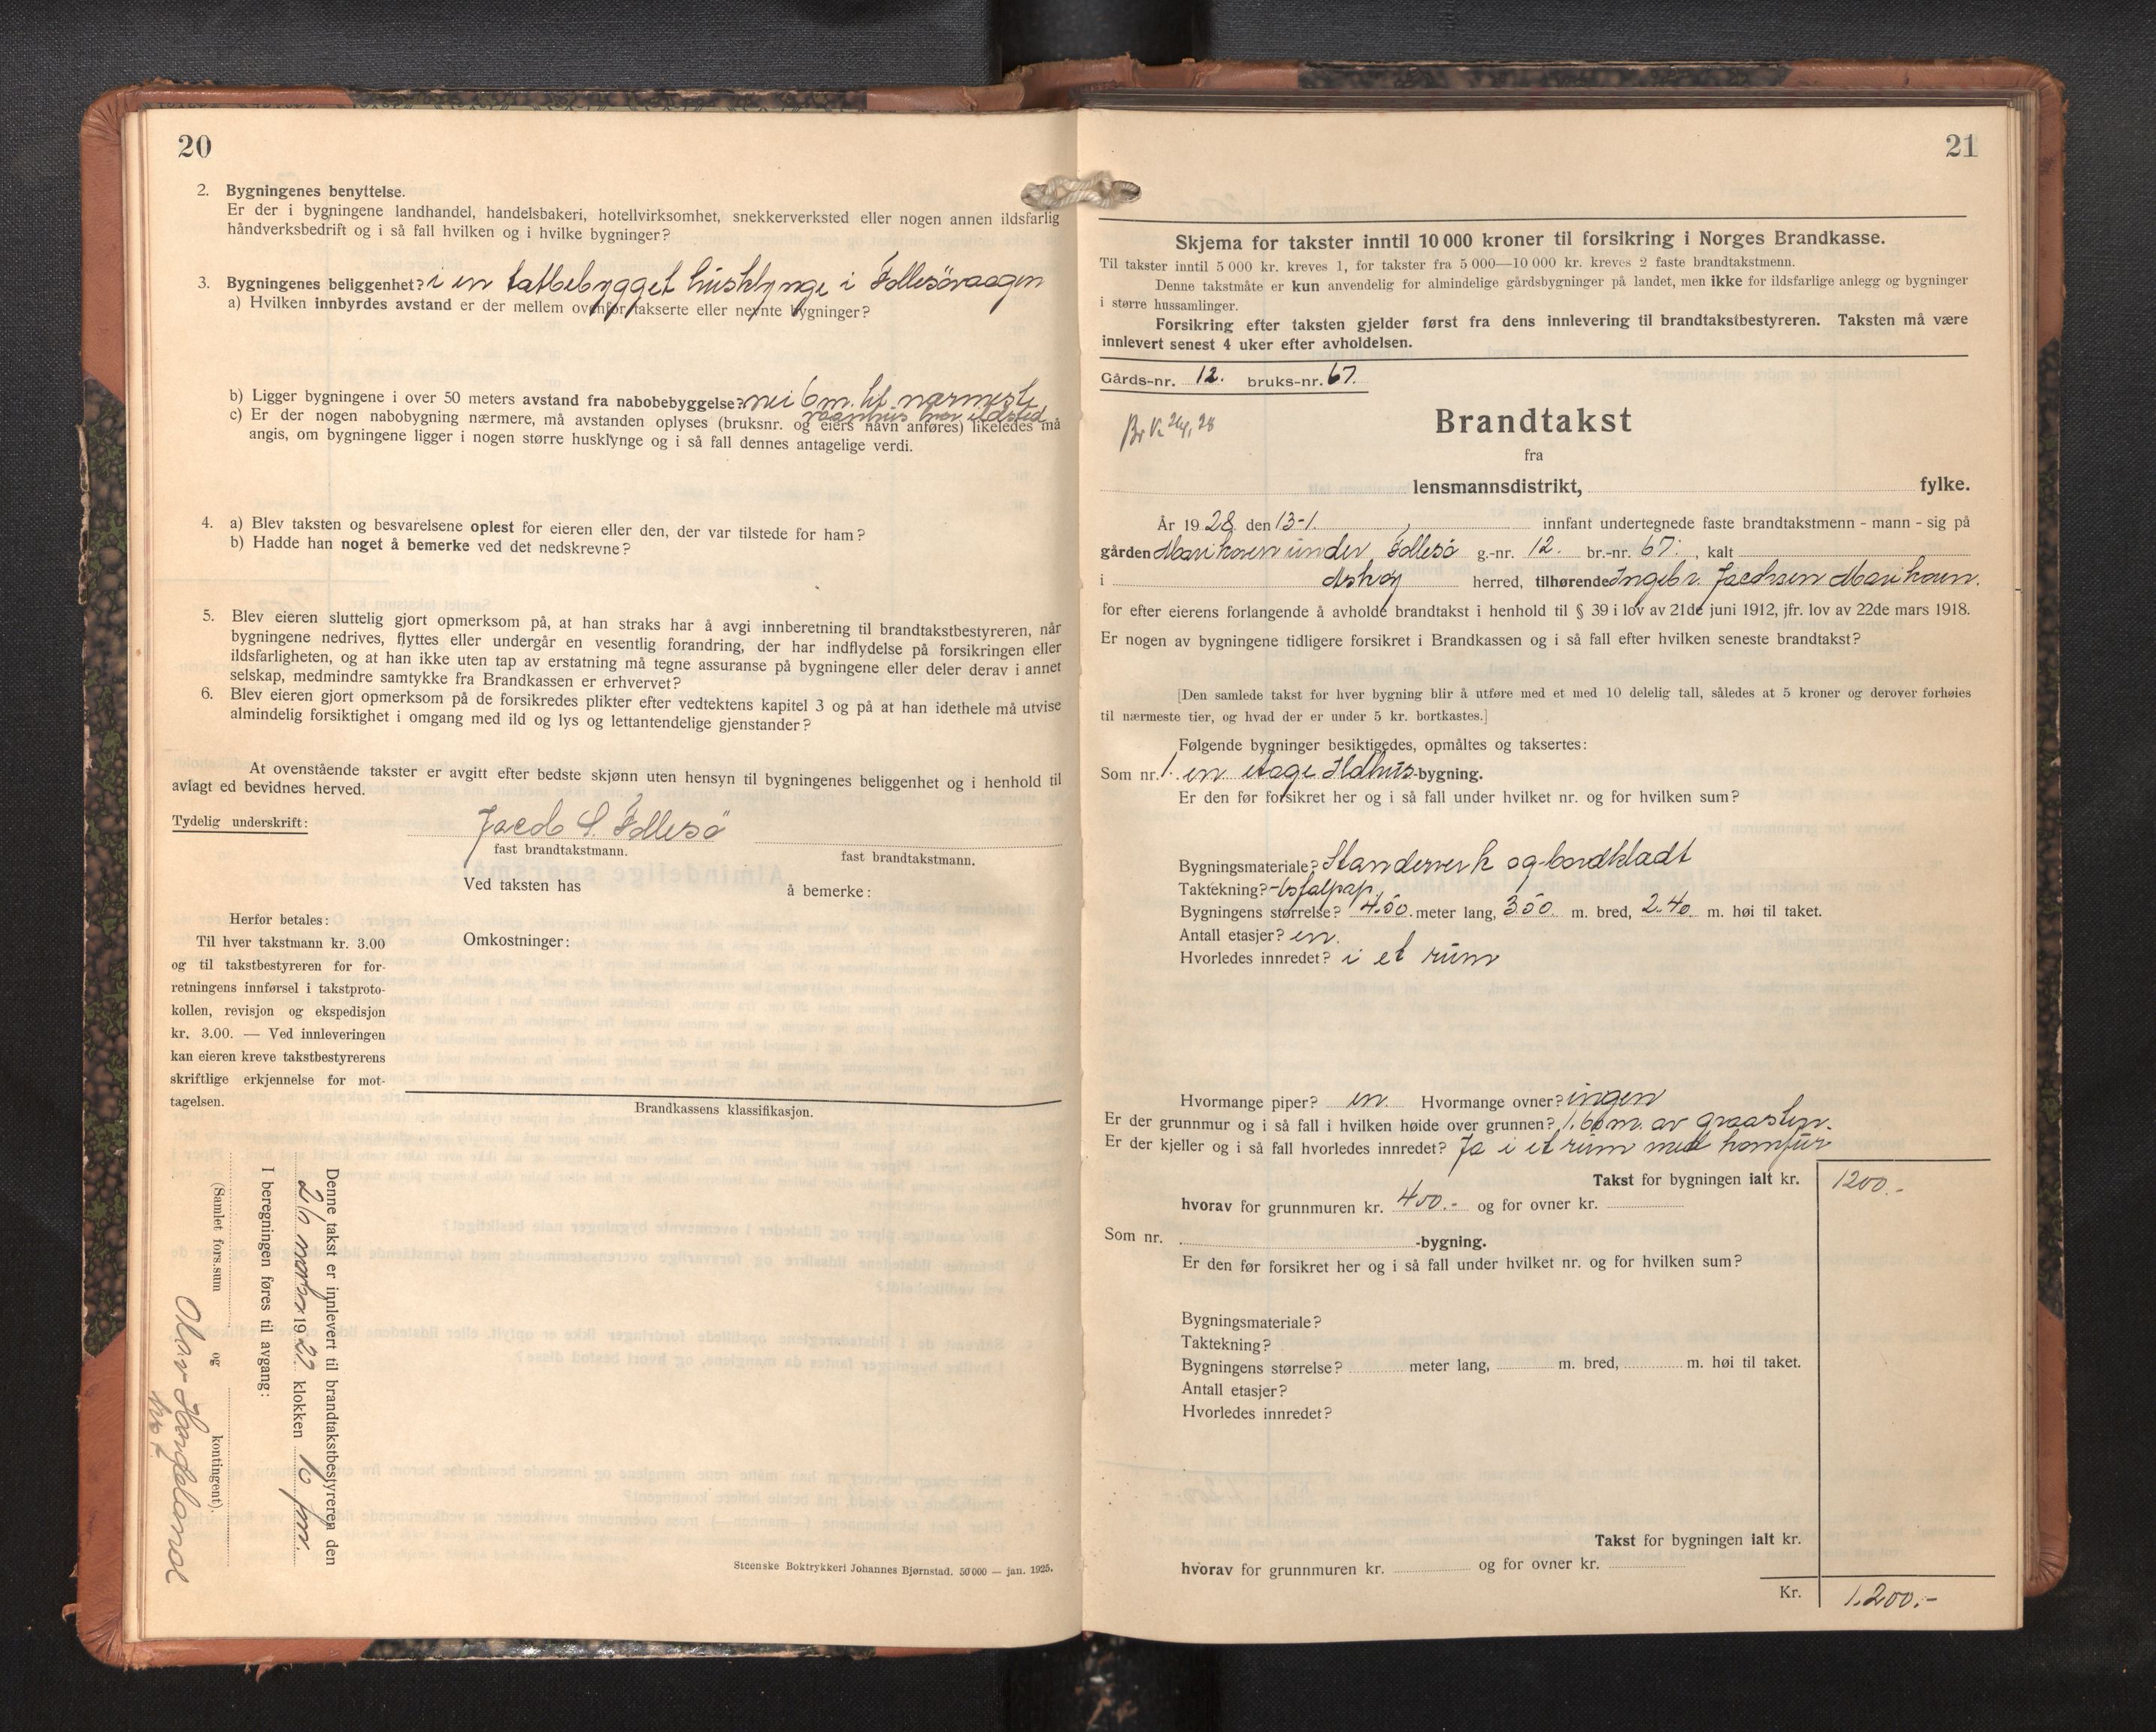 20
2. Bygningenes benyttelse.
Er der i bygningene landhandel, handelsbakeri, hotellvirksomhet, snekkerverksted eller nogen annen ildsfarlig
håndverksbedrift og i så fall hvilken og i hvilke bygninger?
3. Bygningenes beliggenhet? i en tatbebygget husklynge i Follesövaagen
a) Hvilken innbyrdes avstand er der mellem ovenfor takserte eller nevnte bygninger?
b) Ligger bygningene i over 50 meters avstand fra nabobebyggelse? nei 6 m. til nærmeste
vaanhus har ildsted
c) Er der nogen nabobygning nærmere, må avstanden oplyses (bruksnr. og eiers navn anføres) likeledes må
angis, om bygningene ligger i nogen større husklynge og i så fall dennes antagelige verdi.
4. a) Blev taksten og besvarelsene oplest for eieren eller den, der var tilstede for ham?
b) Hadde han noget å bemerke ved det nedskrevne?
5. Blev eieren sluttelig gjort opmerksom på, at han straks har å avgi innberetning til brandtakstbestyreren, når
bygningene nedrives, flyttes eller undergår en vesentlig forandring, der har indflydelse på forsikringen eller
ildsfarligheten, og at han ikke uten tap av erstatning må tegne assuranse på bygningene eller deler derav i annet
selskap, medmindre samtykke fra Brandkassen er erhvervet?
6. Blev eieren gjort opmerksom på de forsikredes plikter efter vedtektens kapitel 3 og på at han idethele må utvise
almindelig forsiktighet i omgang med ild og lys og lettantendelige gjenstander?
At ovenstående takster er avgitt efter bedste skjønn uten hensyn til bygningenes beliggenhet og i henhold til
avlagt ed bevidnes herved.
Tydelig underskrift: Jacob S. Follesö
fast brandtakstmann. fast brandtakstmann.
Ved taksten has å bemerke:
Herfor betales:
Til hver takstmann kr. 3.00
og til takstbestyreren for for-
retningens innførsel i takstproto-
kollen, revisjon og ekspedisjon
kr. 3.00. — Ved innleveringen
kan eieren kreve takstbestyrerens
skriftlige erkjennelse for mot-
tagelsen.
Omkostninger:
Brandkassens klassifikasjon.
Denne takst er innlevert til brandtakstbestyreren den
19 klokken 10 fm.
I beregningen føres til avgang:
(Samlet fors.sum og kontingent).
Olav Hordeland
Steenske Boktrykkeri Johannes Bjørnstad. 50 000 — jan. 1925.
21
Skjema for takster inntil 10 000 kroner til forsikring i Norges Brandkasse.
Til takster inntil 5 000 kr. kreves 1, for takster fra 5 000—10 000 kr. kreves 2 faste brandtakstmenn.
Denne takstmåte er kun anvendelig for almindelige gårdsbygninger på landet, men ikke for ildsfarlige anlegg og bygninger
i større hussamlinger.
Forsikring efter taksten gjelder først fra dens innlevering til brandtakstbestyreren. Taksten må være
innlevert senest 4 uker efter avholdelsen.
Gårds-nr. 12. bruks-nr. 67.
Brandtakst
fra
lensmannsdistrikt, fylke.
År 1928 den 13-1. innfant undertegnede faste brandtakstmenn - mann - sig på
gården Marihaven under Follesö g.-nr. 12. br.-nr. 67. , kalt
i Askøy herred, tilhørende Ingebr. Jacobsen Marihaven.
for efter eierens forlangende å avholde brandtakst i henhold til § 39 i lov av 21de juni 1912, jfr. lov av 22de mars 1918.
Er nogen av bygningene tidligere forsikret i Brandkassen og i så fall efter hvilken seneste brandtakst?
[Den samlede takst for hver bygning blir å utføre med et med 10 delelig tall, således at 5 kroner og derover forhøies
til nærmeste tier, og hvad der er under 5 kr. bortkastes.]
Følgende bygninger besiktigedes, opmåltes og taksertes:
Som nr. 1. en etage Ildhus-bygning.
Er den før forsikret her og i så fall under hvilket nr. og for hvilken sum?
Bygningsmateriale? Standerverk og bordkladt
Taktekning?
Bygningens størrelse? 4.50. meter lang, 350. m. bred, 2.40 m. høi til taket.
Antall etasjer? en.
Hvorledes innredet? i et rum
Hvormange piper? en Hvormange ovner? ingen
Er der grunnmur og i så fall i hvilken høide over grunnen? 1.60 m. av graasten.
Er der kjeller og i så fall hvorledes innredet? Ja i et rum med komfur
Takst for bygningen ialt kr. 1200.-
hvorav for grunnmuren kr. 400.- og for ovner kr.
Som nr. -bygning.
Er den før forsikret her og i så fall under hvilket nr. og for hvilken sum?
Bygningsmateriale?
Taktekning?
Bygningens størrelse? meter lang, m. bred, m. høi til taket.
Antall etasjer?
Hvorledes innredet?
Takst for bygningen ialt kr.
hvorav for grunnmuren kr. og for ovner kr.
Kr. 1.200.-